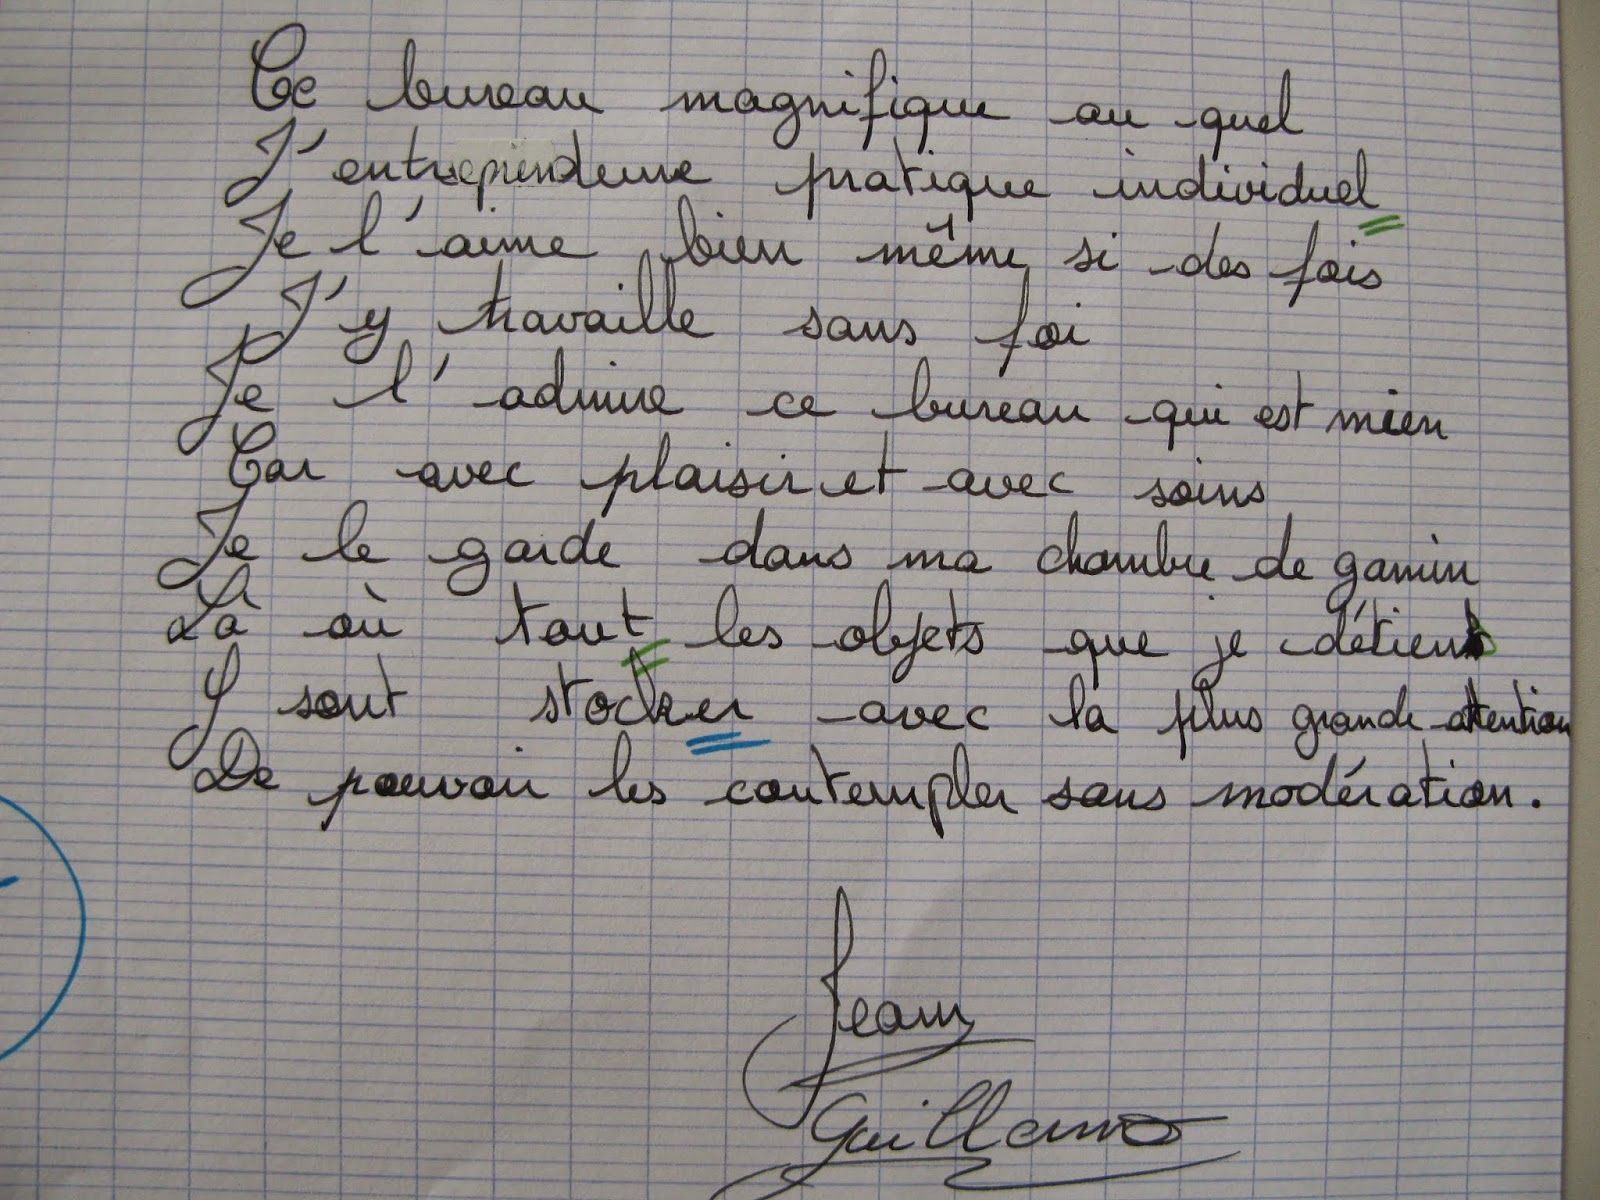 Ce bureau magnifique au quel
J'entreprendeune pratique individuel
Je l'aime bien même si des fois
J'y travaille sans foi
Je l'admire ce bureau qui est mien
Car avec plaisir et avec soins
Je le garde dans ma chambre de gamin
Là où tout les objets que je détiens
Y sont stocker avec la plus grande attention
De pouvoir les contempler sans modération.
Jean
Guillermo